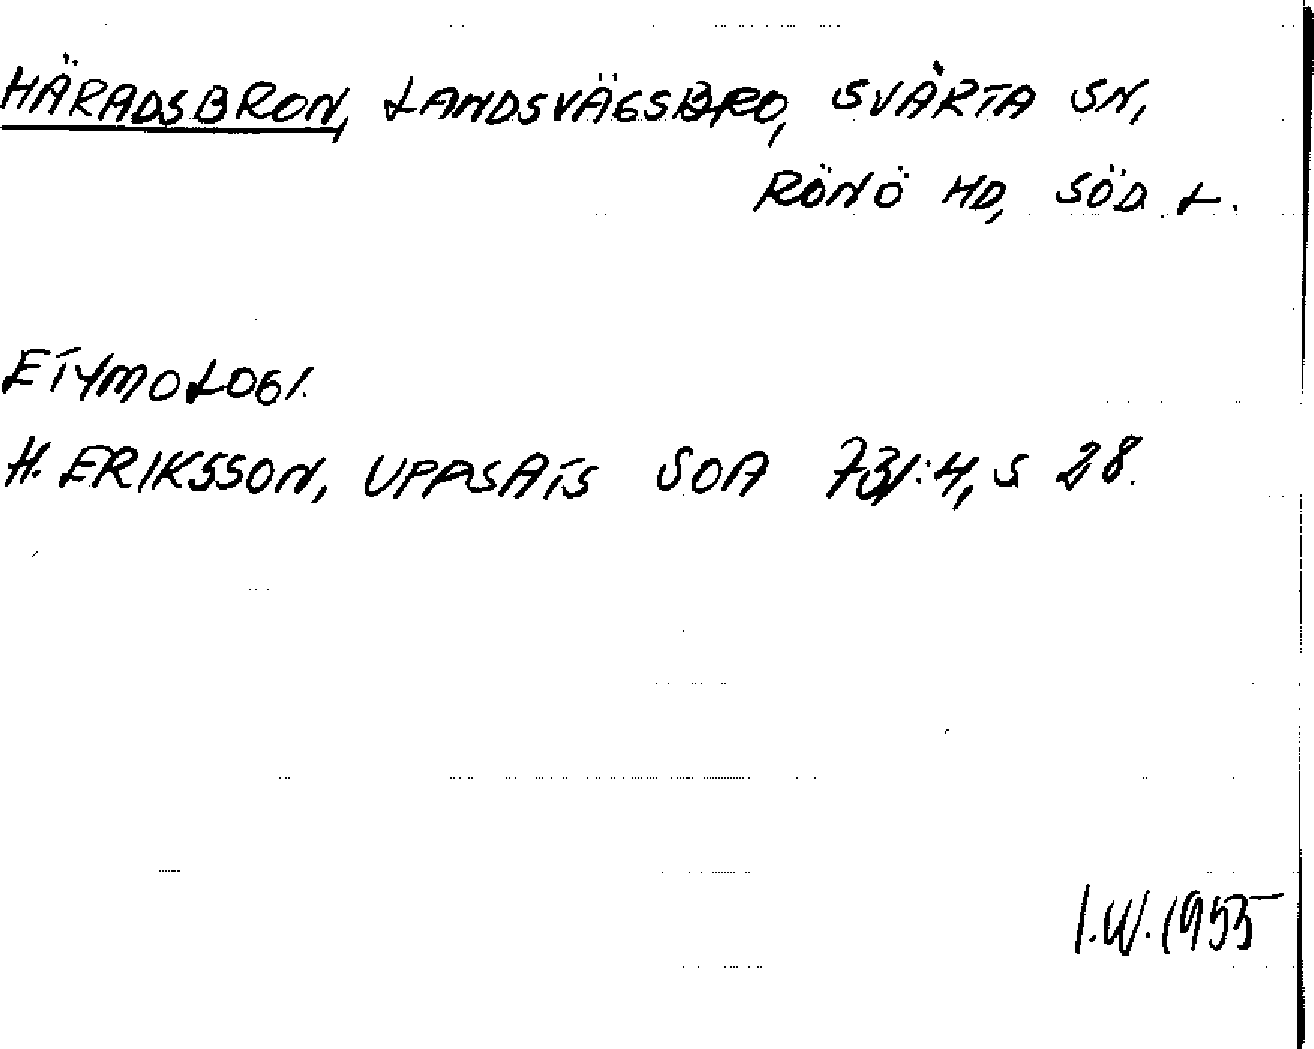 HÄRADSBRON, LANDSVÄGSBRO, SVÄRTA SN,
RÖNÖ HD, SÖD. L.
ETYMOLOGI.
H. ERIKSSON, UPPSATS SOA 731:4, S 28.
I.W. 1955